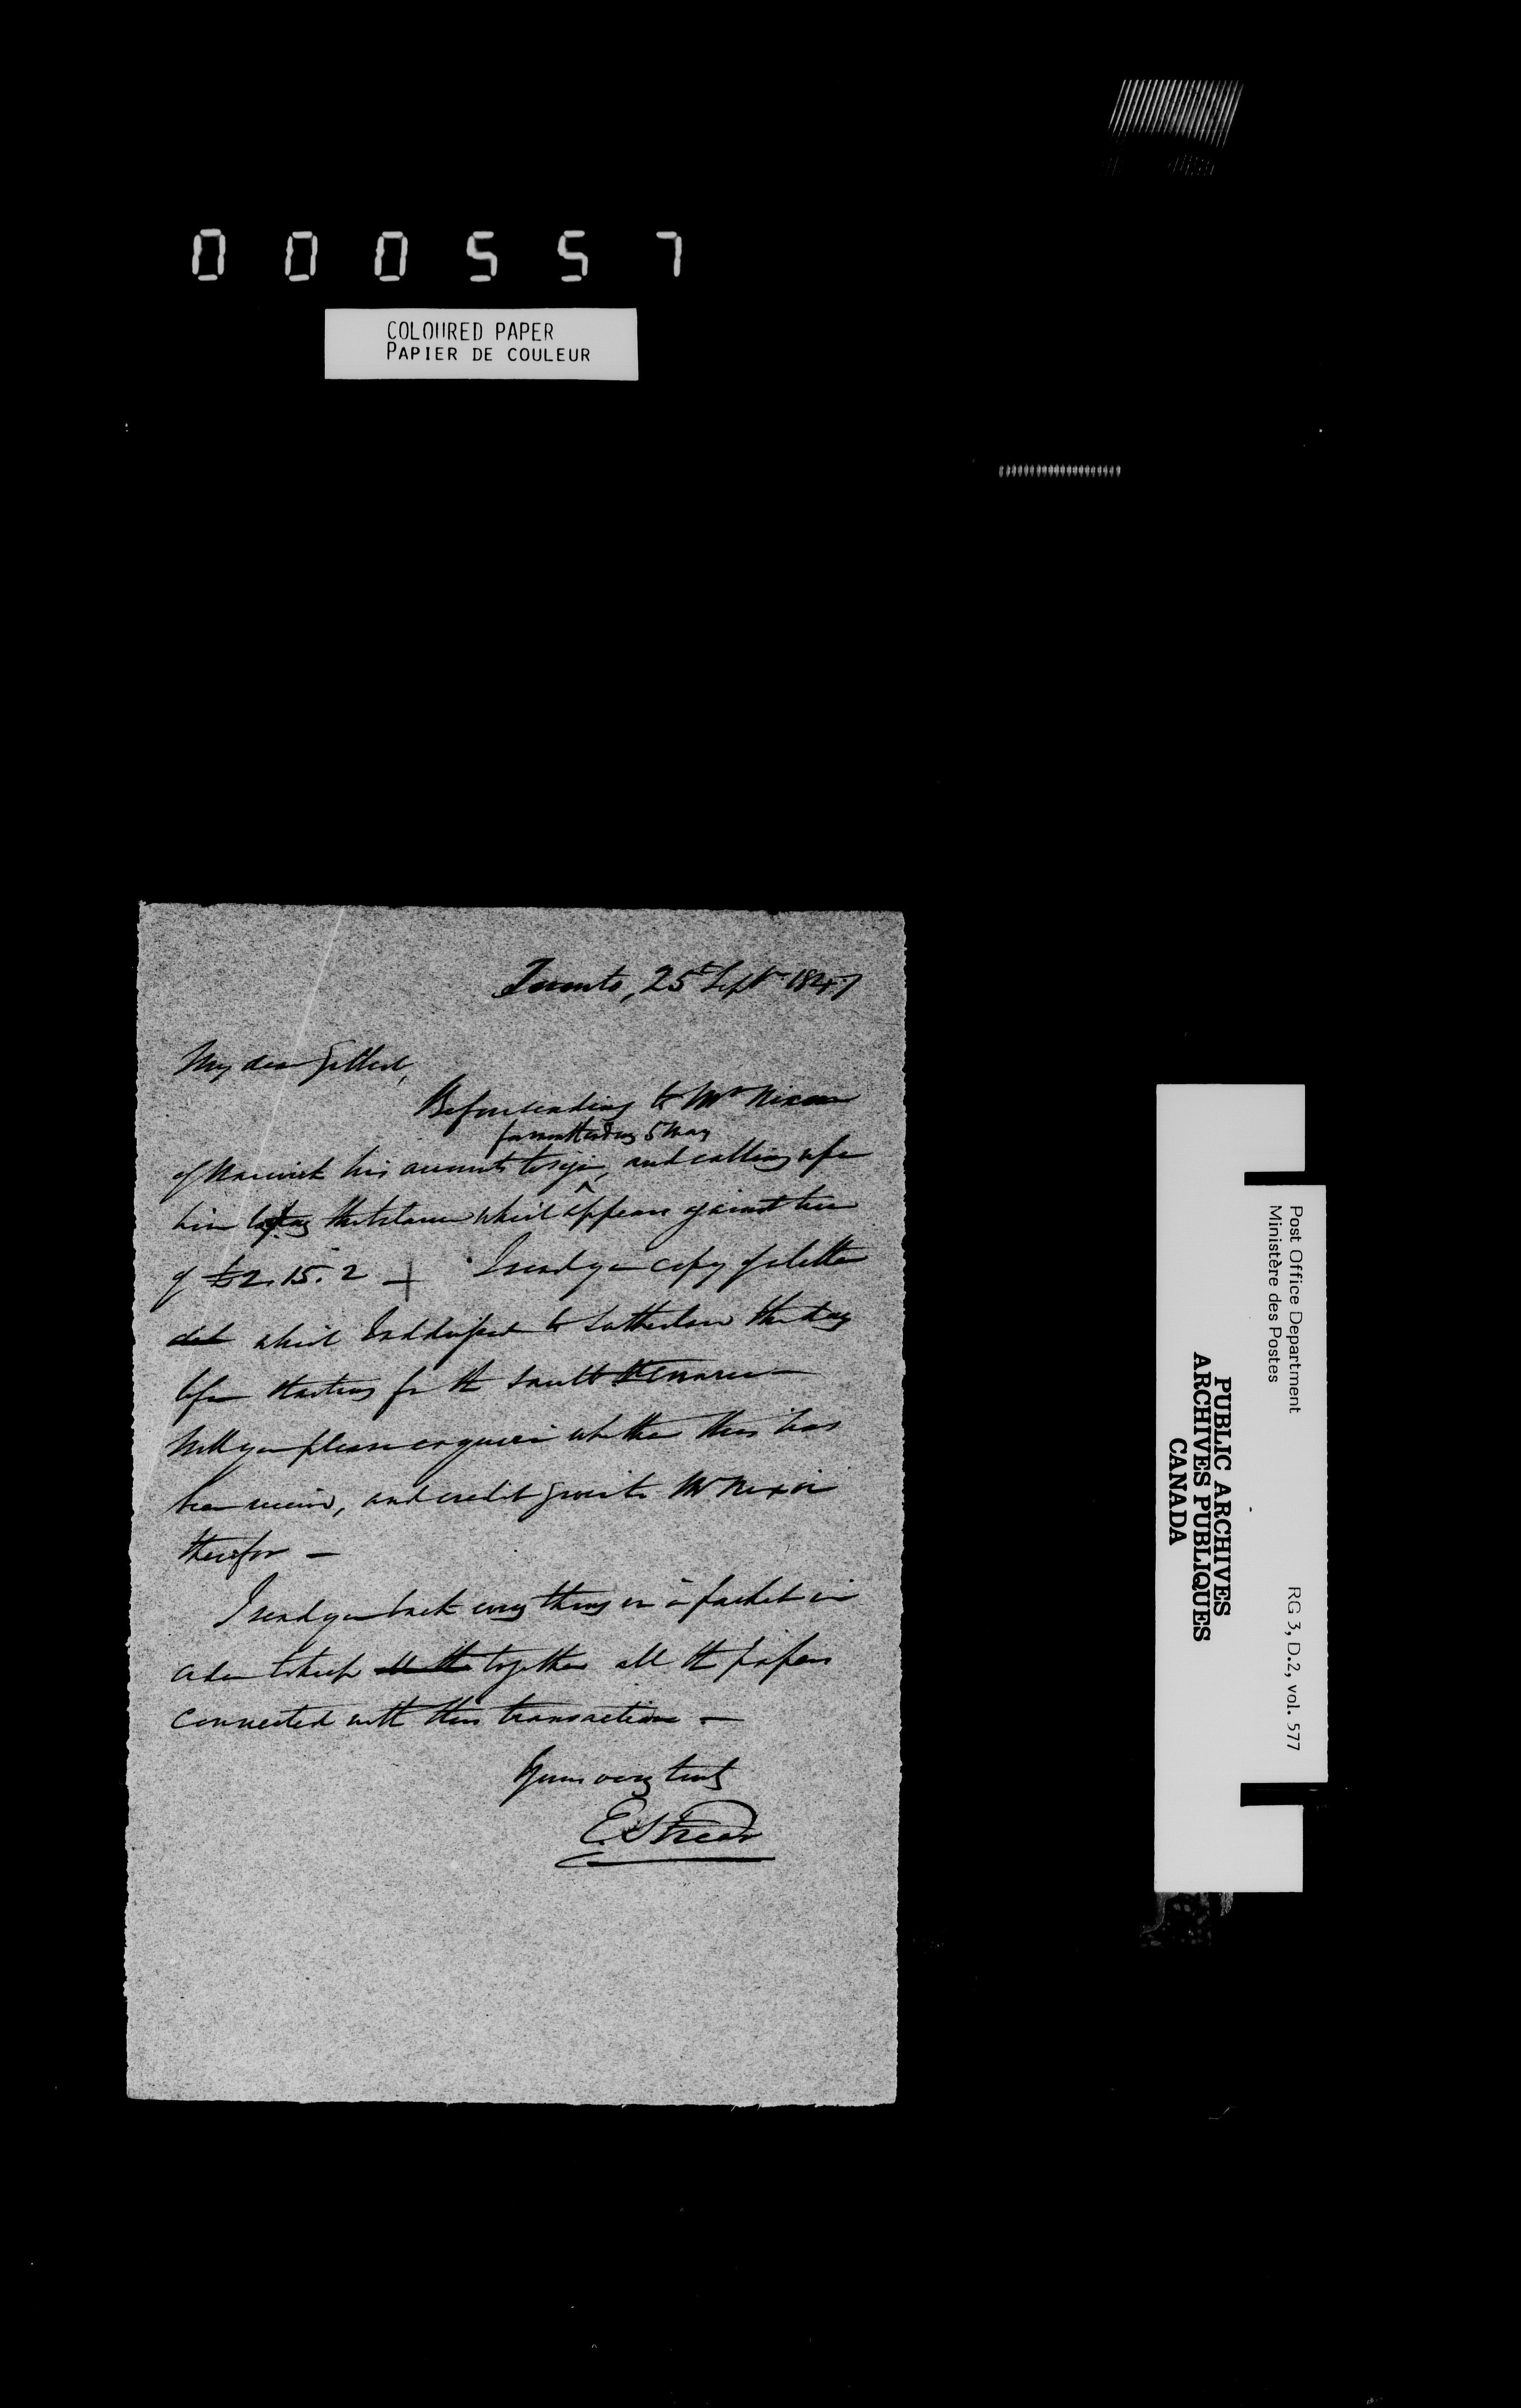 000557
COLOURED PAPER
PAPIER DE COULEUR
Toronto, 25th Septr 1847
My dear
Before sending to Mr Nixon
for month ending 5 May
of Warwick his accounts to sign, and calling upon
him to pay the balance which appears against him
of £2.15.2 — I send you copy of letter
which I addressed to Sutherland the day
before starting for the Sault Ste Marie —
Will you please enquire whether this has
been received, and credit given to Mr Nixon
therefor —
I send you back every thing in a packet in
order to keep together all the papers
connected with this transaction —
Yours very truly
E. S. Freer
Post Office Department
Ministère des Postes
RG 3, D.2, vol. 577
PUBLIC ARCHIVES
ARCHIVES PUBLIQUES
CANADA